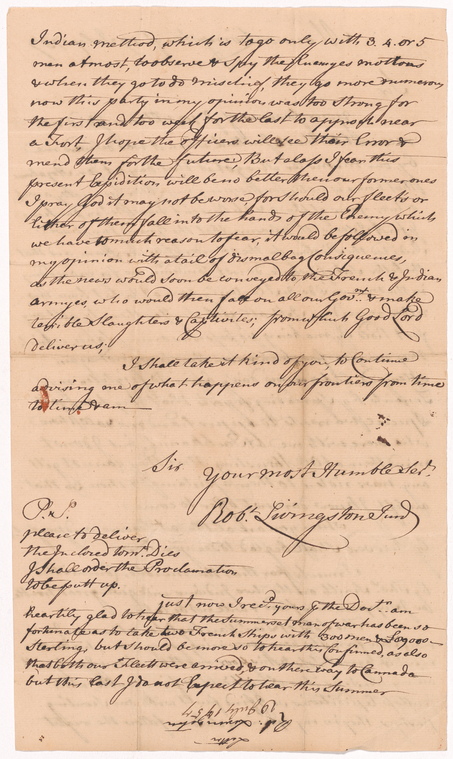 Indian method, which is to go only with 3. 4. or 5
men at most, to observe & Spy the Enemyes motions
& when they go to do mischief, they go more numerous
now this party in my opinion was too strong for
the first and too weak for the last to approach near
a Fort, I hope the officers will see their Error &
mend them for the future, But alass I fear this
present Expidition will be no better then our former ones
I pray God it may not be worse, for should our fleets or
Either of them fall into the hands of the Enemy which
we have to much reason to fear, it would be followed in
my opinion with a tail of dismal bad Consiquences,
as the news would soon be conveyed to the French & Indian
armyes who would then fall on all our Govmt. & make
terrible Slaughters & Captivites; from which Good Lord
deliver us;
I Shall take it kind of you, to Continue
advising me of what happens on our frontiers from time
to time & am
Sir
Your most Humble Servt.
Robt. Livingston Junr
P.S.
please to deliver
the Inclosed to mr. Dies
I shall order the Proclamation
to be putt up.
just now I recd. yours of the am
heartily glad to hear that the Summerset man of war has been so
fortunate as to take two French Ships with 300 men &
Sterling, but should be more so to hear this Confirmed, as also
that both our fleets were arrived & on there way to Cannada
but this last I do not Expect to hear this Summer
Letter